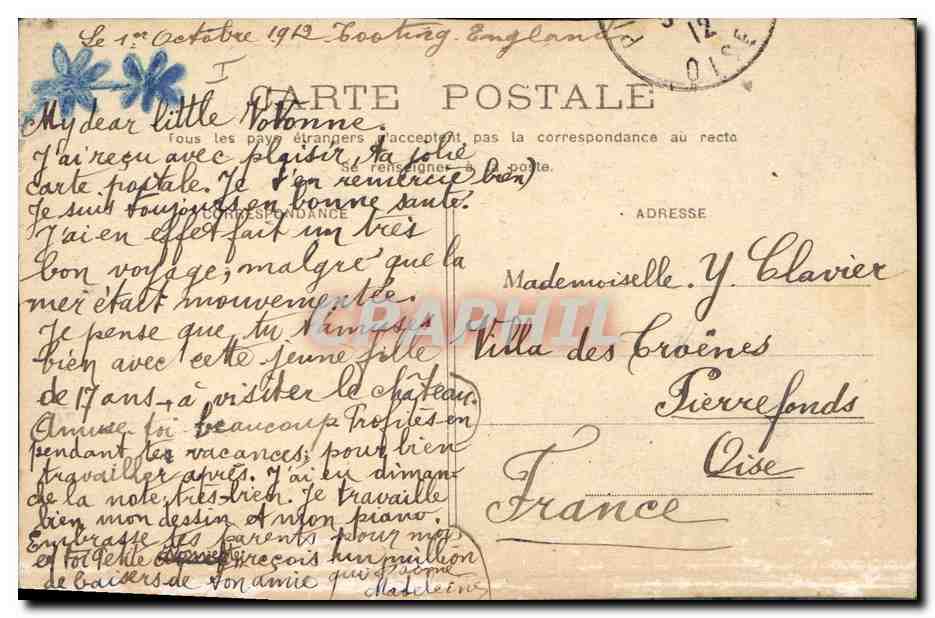 Le 1er Octobre 1912 Tooting. England
I
12
OISE
CARTE POSTALE
My dear little Vovonne.
Tous les pays étrangers n'acceptent pas la correspondance au recto
J'ai reçu avec plaisir, ta jolie
Se renseigner à la poste.
carte postale. Je t'en remercie bien
Je suis toujours en bonne santé.
CORRESPONDANCE
ADRESSE
J'ai en effet fait un très
bon voyage, malgré que la
mer était mouvementée.
Je pense que tu t'amuses
bien avec cette jeune fille
de 17 ans, à visiter le château.
Amuse toi beaucoup Profites en
pendant tes vacances, pour bien
travailler après. J'ai eu diman-
che la note très-bien. Je travaille
bien mon dessin et mon piano.
Embrasse tes parents pour moi
et toi reçois un million
de baisers de ton amie qui t'aime
Madeleine
Mademoiselle. Y. Clavier
Villa des Troënes
Pierrefonds
Oise
France
CPAPHIL